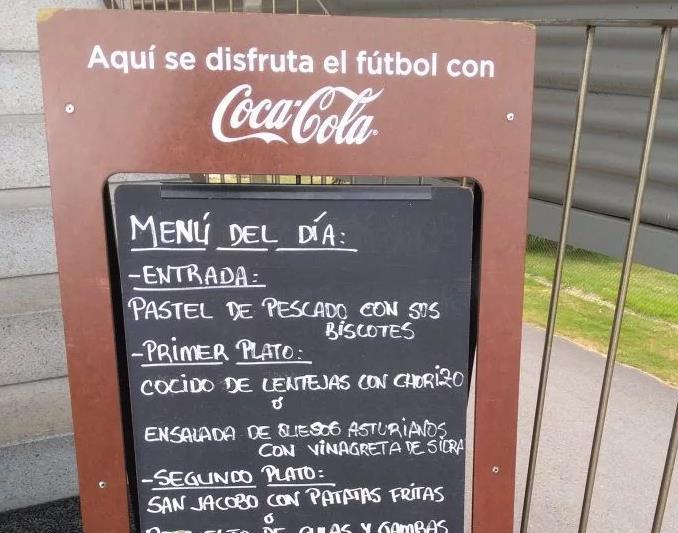 Aquí se disfruta el fútbol con
Coca-Cola
MENÚ DEL DÍA:
-ENTRADA:
PASTEL DE PESCADO CON SUS
BISCOTES
-PRIMER PLATO:
COCIDO DE LENTEJAS CON CHORIZO
ó
ENSALADA DE QUESOS ASTURIANOS
CON VINAGRETA DE SIDRA
-SEGUNDO PLATO:
SAN JACOBO CON PATATAS FRITAS
ó
DE GULAS Y GAMBAS